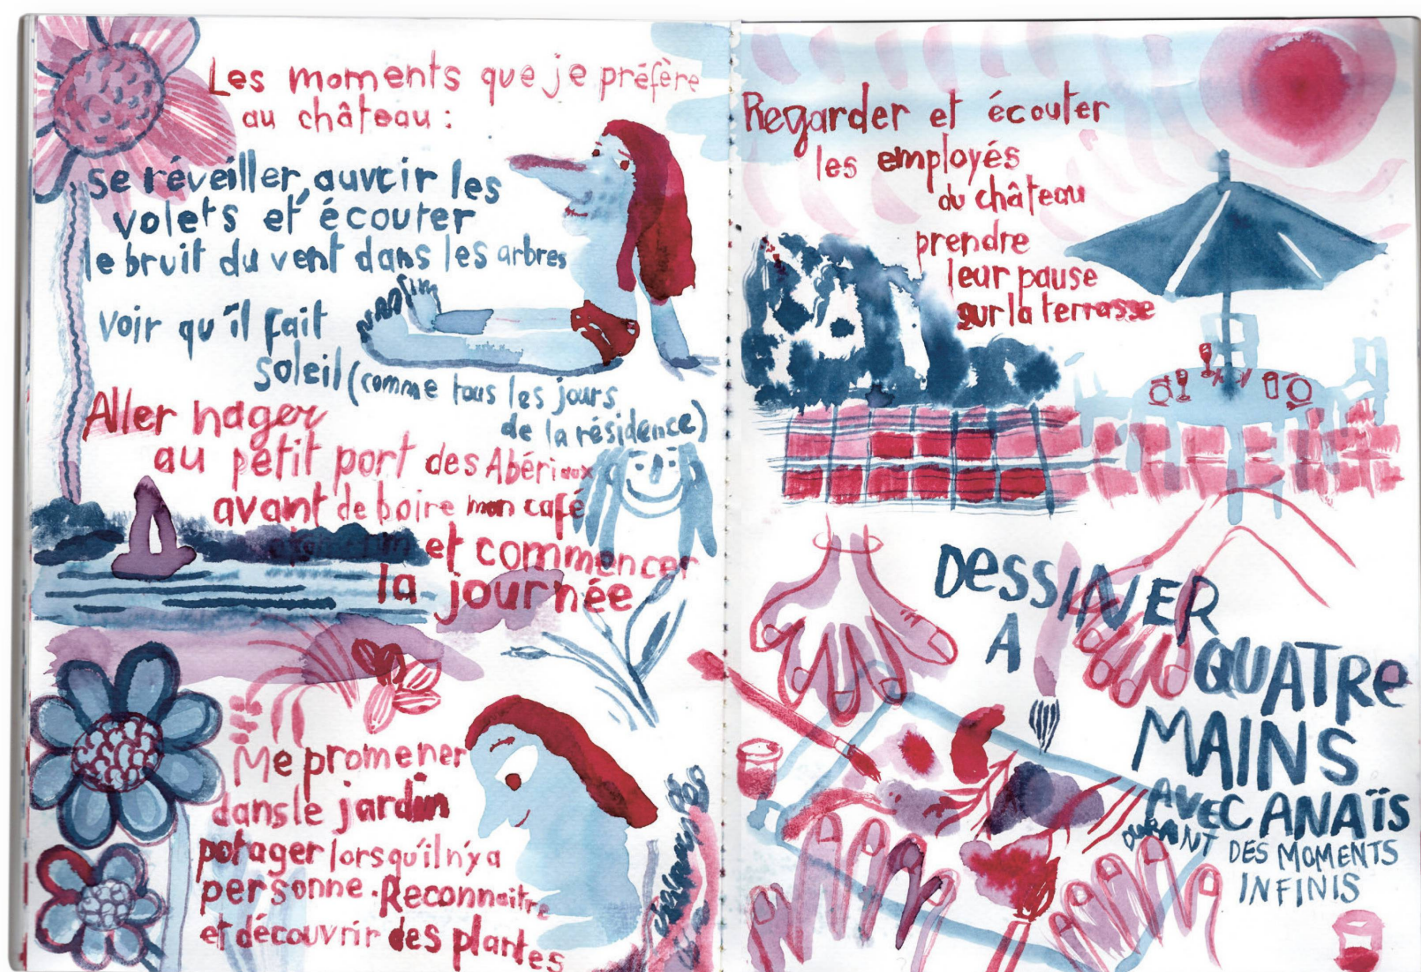 Les moments que je préfère
au château :
se réveiller, ouvrir les
volets et écouter
le bruit du vent dans les arbres
voir qu'il fait
soleil (comme tous les jours
de la résidence)
Aller nager
au petit port des
avant de boire mon café
et commencer
la journée
Me promener
dans le jardin
potager lorsqu'il n'y a
personne. Reconnaître
et découvrir des plantes
Regarder et écouter
les employés
du château
prendre
leur pause
sur la terrasse
DESSINER
A
QUATRE
MAINS
AVEC ANAÏS
DURANT DES MOMENTS
INFINIS